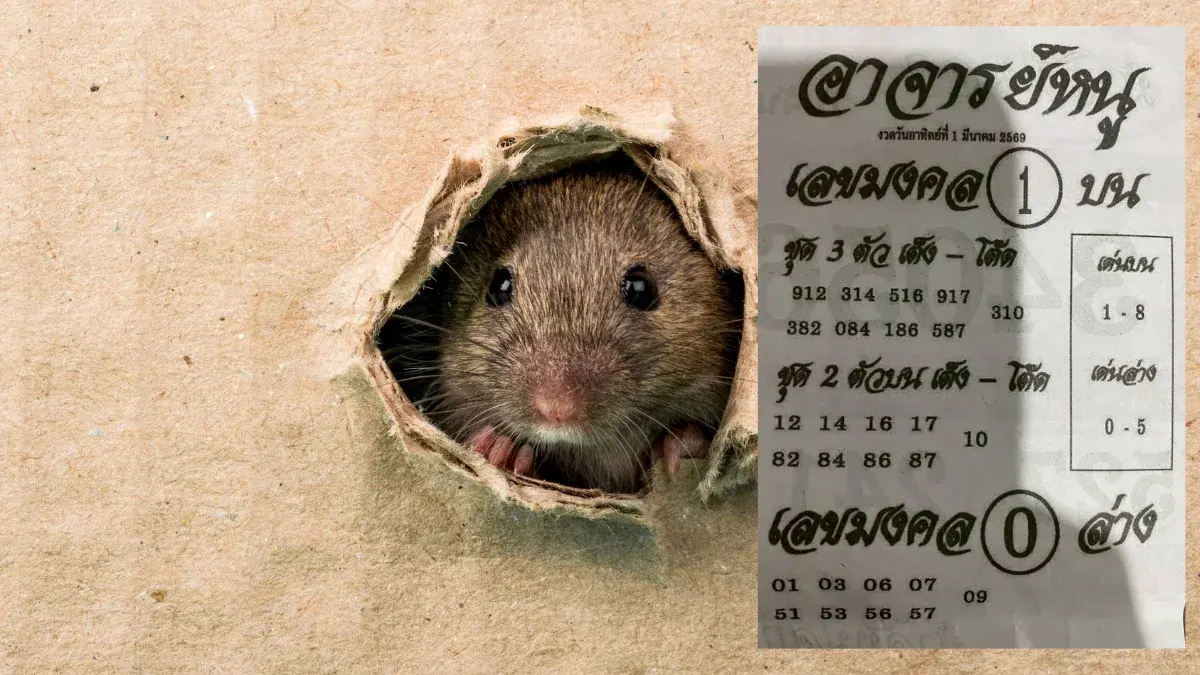 อาจารย์หนู
งวดวันอาทิตย์ที่ 1 มีนาคม 2569
เลขมงคล 1 บน
ชุด 3 ตัว เต็ง - โต๊ด
912 314 516 917
310
382 084 186 587
เด่นบน
1 - 8
ชุด 2 ตัวบน เต็ง - โต๊ด
12 14 16 17
10
82 84 86 87
เด่นล่าง
0 - 5
เลขมงคล 0 ล่าง
01 03 06 07
09
51 53 56 57